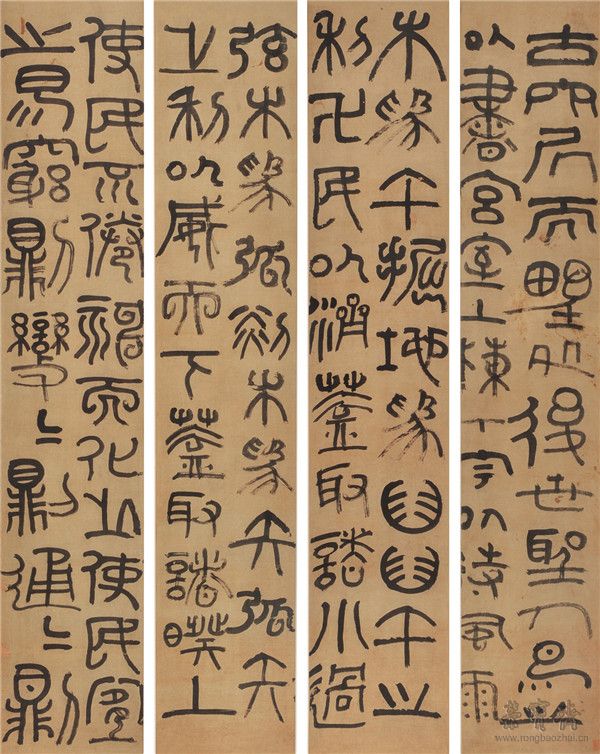 古穴居而野処後世聖人易之
以書宮室上棟下宇以待風雨
木為午掘地為臼臼午之
利卍民以濟蓋取諸小過
弦木為弧剡木為矢弧矢
之利以威天下蓋取諸睽上
使民不倦神而化之使民宜
之易窮則變〻則通〻則
榮寶齋
www.rongbaozhai.cn